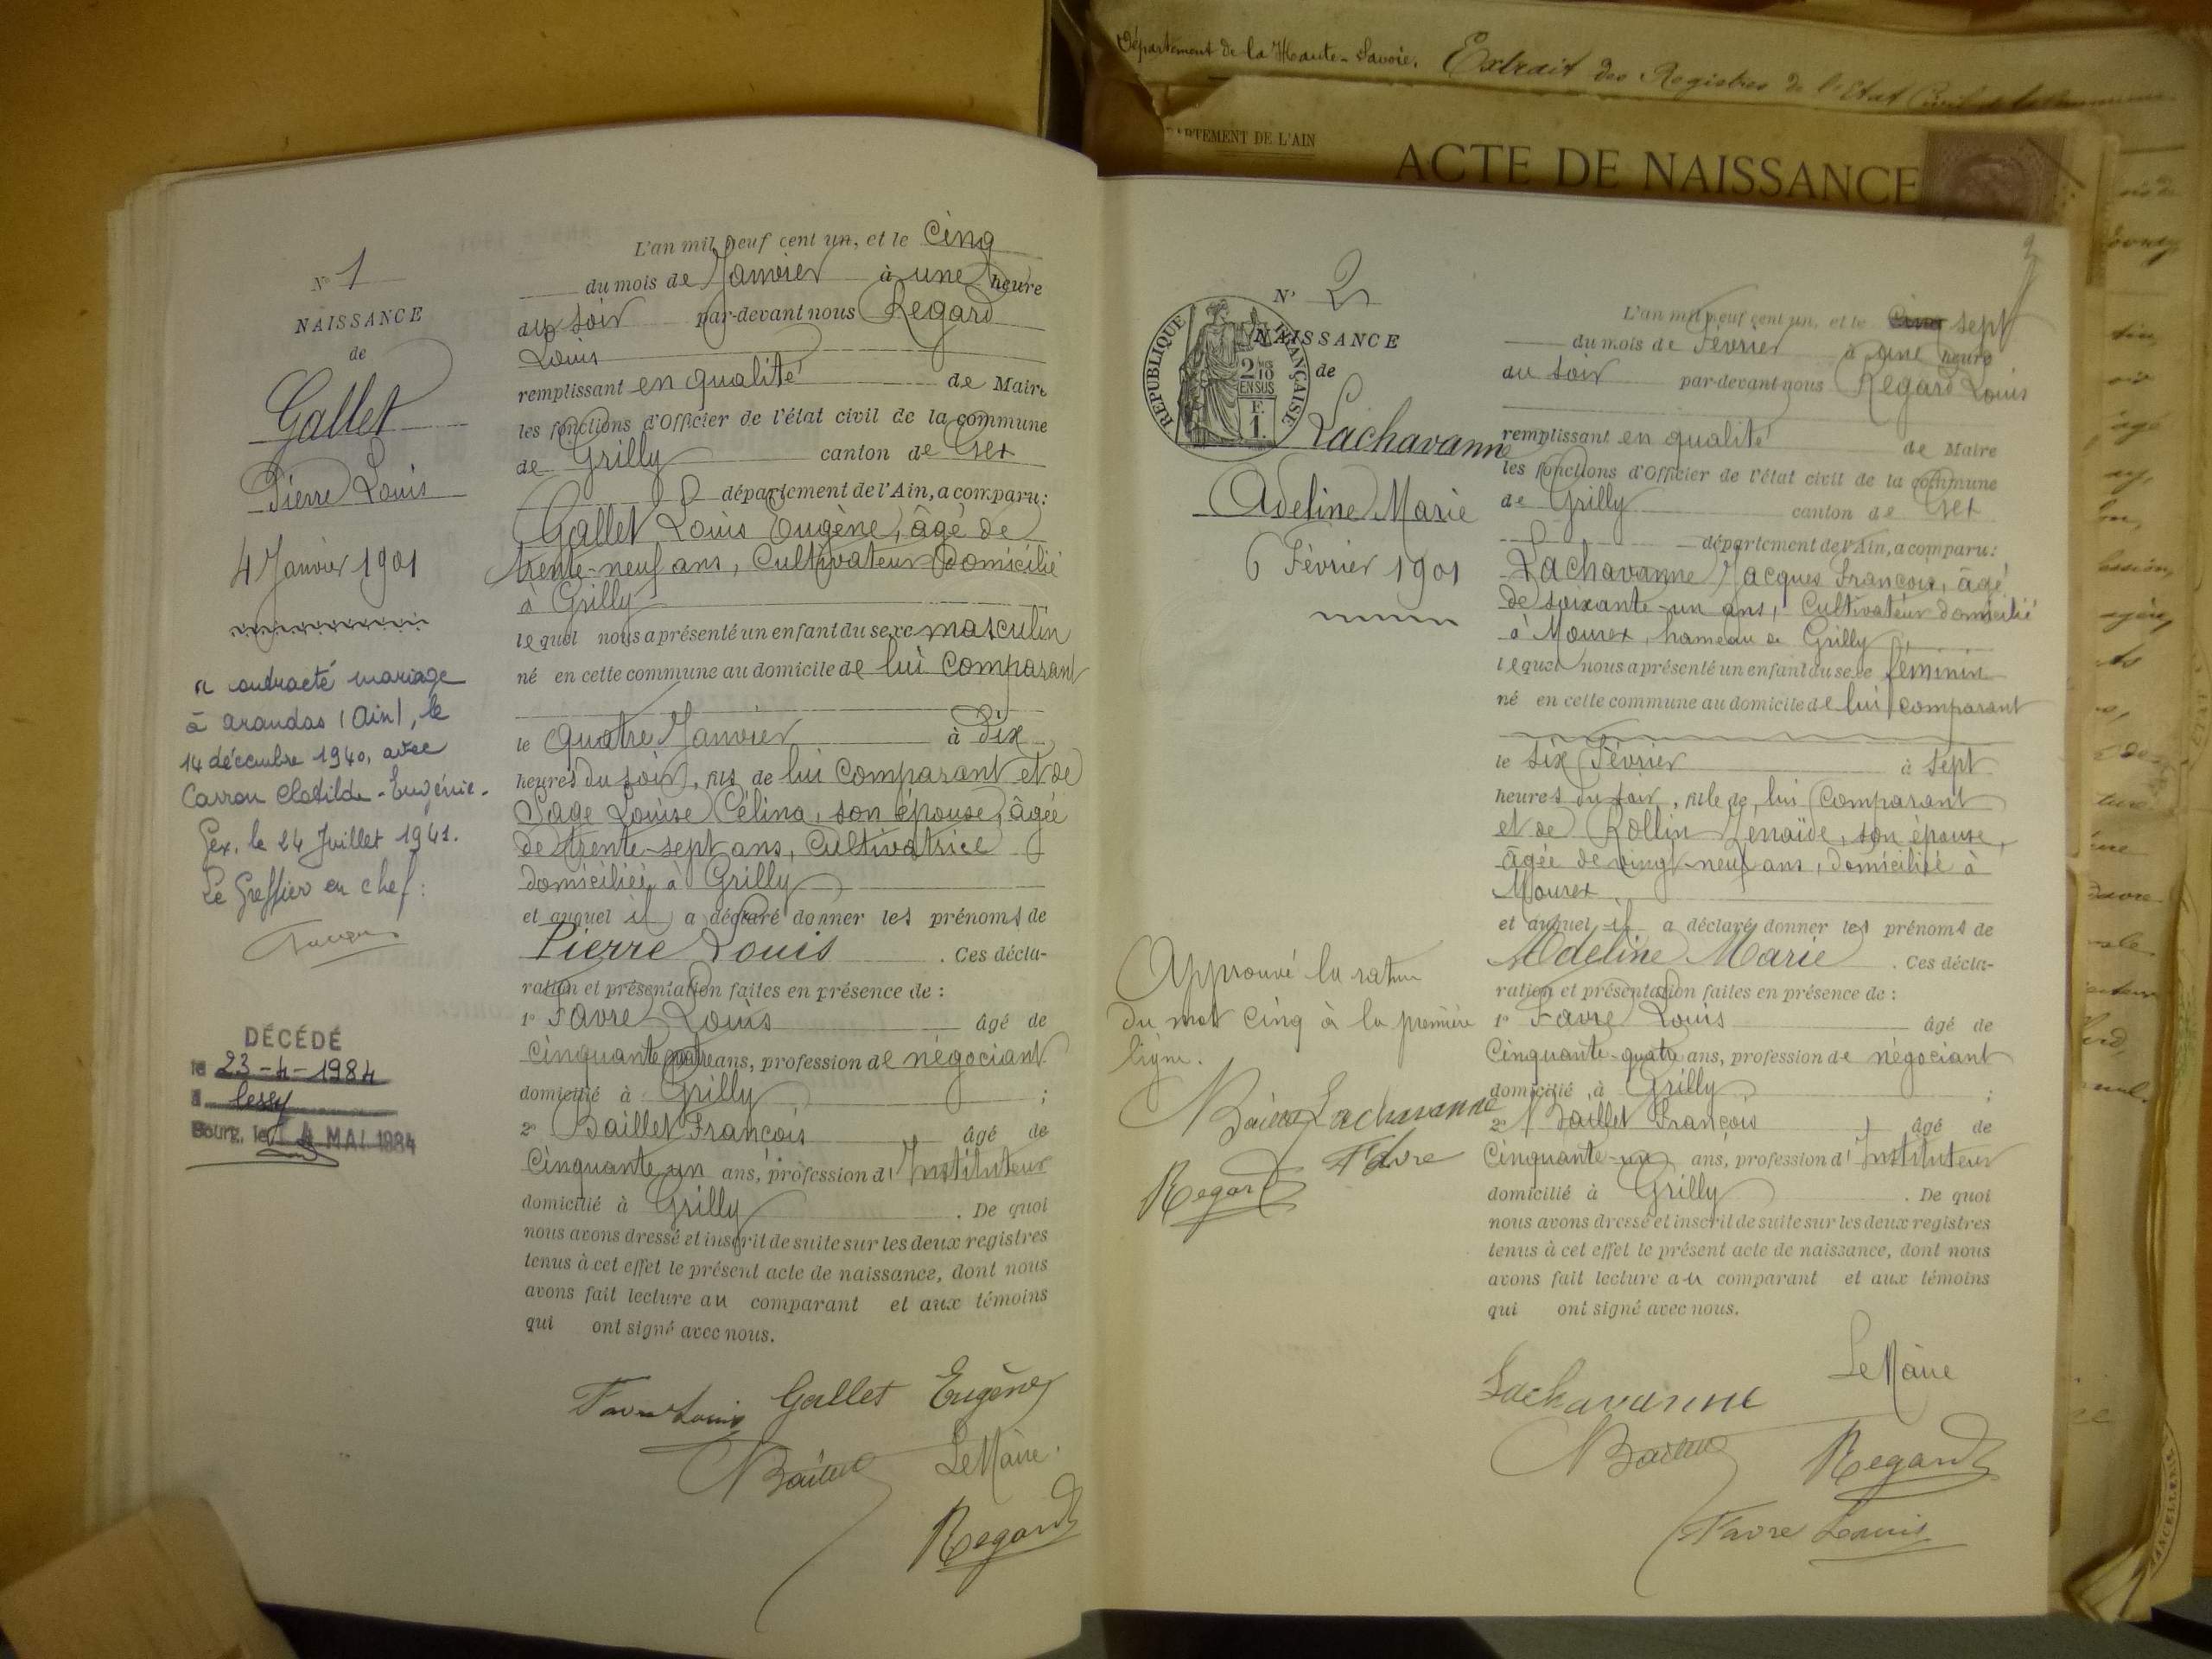 Département de la Haute-Savoie. Extrait des Registres de l'Etat Civil de la
DEPARTEMENT DE L'AIN
ACTE DE NAISSANCE
N° 1
NAISSANCE
de
Gallet
Pierre Louis
4 Janvier 1901
a contracté mariage
à Arandas (Ain), le
14 décembre 1940, avec
Carron Clotilde-Eugénie.
Gex, le 24 Juillet 1941.
Le Greffier en chef:
DÉCÉDÉ
le 23-4-1984
à Cessy
Bourg, le 4 MAI 1984
L'an mil neuf cent un, et le Cinq
du mois de Janvier à une heure
du soir par-devant nous Regard
Louis
remplissant en qualité de Maire
les fonctions d'Officier de l'état civil de la commune
de Grilly canton de Gex
département de l'Ain, a comparu:
Gallet Louis Eugène, âgé de
trente-neuf ans, Cultivateur Domicilié
à Grilly
lequel nous a présenté un enfant du sexe masculin
né en cette commune au domicile de lui Comparant
le Quatre Janvier à Dix
heures du soir, fils de lui Comparant et de
Sage Louise Célina, son épouse, âgée
de trente-sept ans, Cultivatrice
domiciliée à Grilly
et auquel il a déclaré donner les prénoms de
Pierre Louis . Ces décla-
ration et présentation faites en présence de :
1° Favre Louis âgé de
Cinquante quatre ans, profession de négociant
domicilié à Grilly ;
2° Baillet François âgé de
Cinquante un ans, profession d'Instituteur
domicilié à Grilly . De quoi
nous avons dressé et inscrit de suite sur les deux registres
tenus à cet effet le présent acte de naissance, dont nous
avons fait lecture au comparant et aux témoins
qui ont signé avec nous.
Favre Louis Gallet Eugène
Baillet Le Maire
Regard
2
N° 2
NAISSANCE
de
RÉPUBLIQUE FRANÇAISE
2/10
EN SUS
F.
1.
Lachavanne
Adeline Marie
6 Février 1901
Approuvé la rature
du mot cinq à la première
ligne.
Baillet Lachavanne
Favre
Regard
L'an mil neuf cent un, et le Cinq sept
du mois de Février à une heure
du soir par-devant nous Regard Louis
remplissant en qualité de Maire
les fonctions d'Officier de l'état civil de la commune
de Grilly canton de Gex
département de l'Ain, a comparu:
Lachavanne Jacques François, âgé
de soixante-un ans, Cultivateur domicilié
à Mourex, hameau de Grilly
lequel nous a présenté un enfant du sexe féminin
né en cette commune au domicile de lui comparant
le six Février à sept
heures du soir, fille de lui Comparant
et de Rollin Zenaïde, son épouse,
âgée de vingt-neuf ans, domiciliée à
Mourex
et auquel il a déclaré donner les prénoms de
Adeline Marie . Ces décla-
ration et présentation faites en présence de :
1° Favre Louis âgé de
Cinquante-quatre ans, profession de négociant
domicilié à Grilly ;
2° Baillet François âgé de
Cinquante-un ans, profession d'Instituteur
domicilié à Grilly . De quoi
nous avons dressé et inscrit de suite sur les deux registres
tenus à cet effet le présent acte de naissance, dont nous
avons fait lecture au comparant et aux témoins
qui ont signé avec nous.
Lachavanne Le Maire
Baillet Regard
Favre Louis